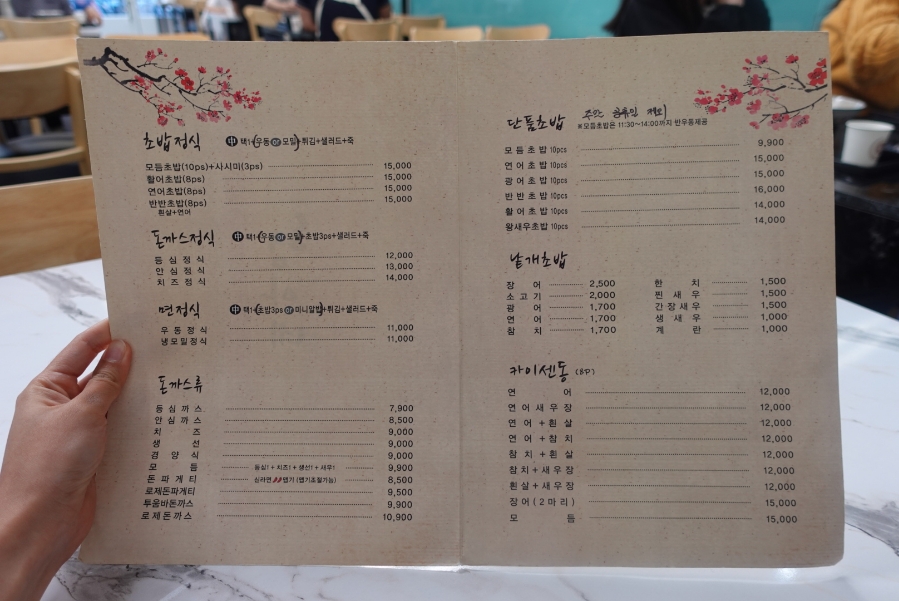 초밥정식 中 택1(우동 or 모밀)+튀김+샐러드+죽
모둠초밥(10ps)+사시미(3ps) 15,000
활어초밥(8ps) 15,000
연어초밥(8ps) 15,000
반반초밥(8ps) 15,000
흰살+연어
돈까스정식 中 택1(우동 or 모밀)+초밥3ps+샐러드+죽
등심정식 12,000
안심정식 13,000
치즈정식 14,000
면정식 中 택1(초밥3ps or 미니알밥)+튀김+샐러드+죽
우동정식 11,000
냉모밀정식 11,000
돈까스류
등심까스 7,900
안심까스 8,500
치즈 9,000
생선 9,000
경양식 9,000
모듬 등심1 + 치즈1 + 생선1 + 새우1 9,900
돈파게티 신라면 맵기 (맵기조절가능) 8,500
로제돈파게티 9,500
투움바돈까스 9,900
로제돈까스 10,900
단품초밥 주말 공휴일 제외
※모듬초밥은 11:30~14:00까지 반우동제공
모듬초밥 10pcs 9,900
연어초밥 10pcs 15,000
광어초밥 10pcs 15,000
반반초밥 10pcs 16,000
활어초밥 10pcs 14,000
왕새우초밥 10pcs 14,000
낱개초밥
장어 2,500 한치 1,500
소고기 2,000 찐새우 1,500
광어 1,700 간장새우 1,500
연어 1,700 생새우 1,000
참치 1,700 계란 1,000
카이센동 (8P)
연어 12,000
연어새우장 12,000
연어+흰살 12,000
연어+참치 12,000
참치+흰살 12,000
참치+새우장 12,000
흰살+새우장 12,000
장어(2마리) 15,000
모듬 15,000